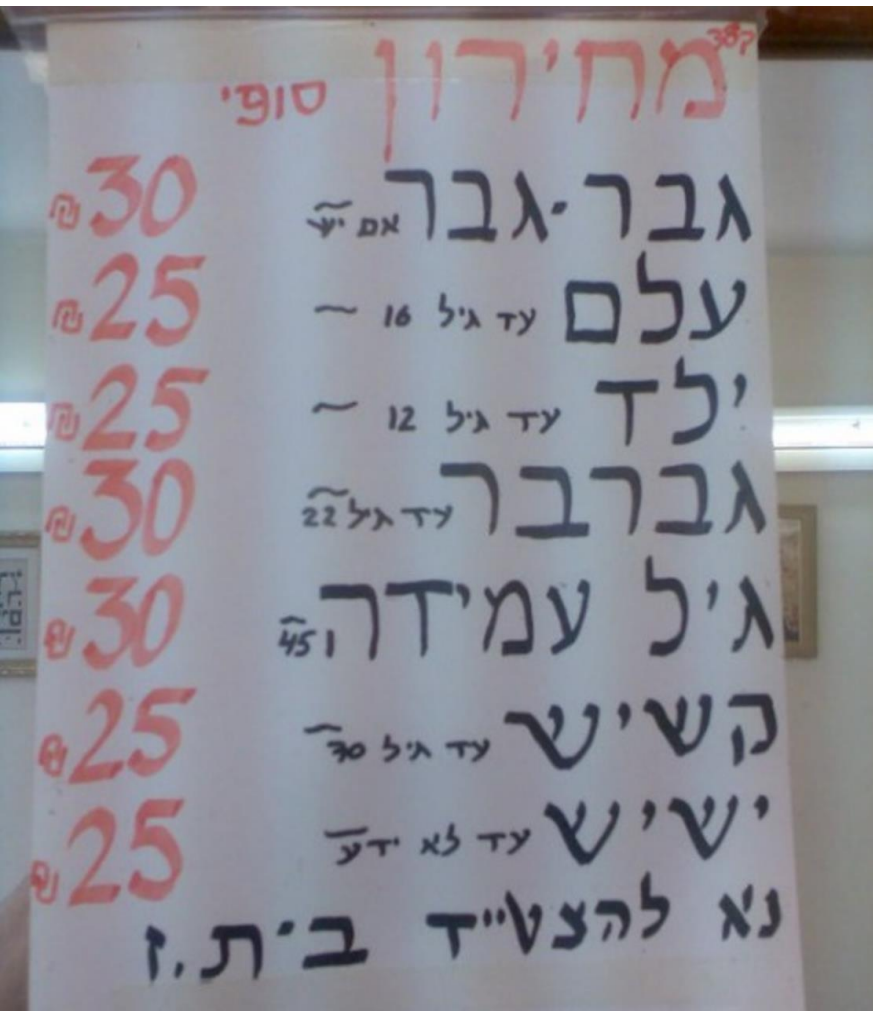 מחירון סופי
גבר-גבר אם יש ~ 30 ₪
עלם עד גיל 16 ~ 25 ₪
ילד עד גיל 12 ~ 25 ₪
גברבר עד גיל 22 ~ 30 ₪
גיל עמידה 45 ~ 30 ₪
קשיש עד גיל ~ 25 ₪
ישיש עד לא ידע ~ 25 ₪
נא להצטייד ב-ת.ז